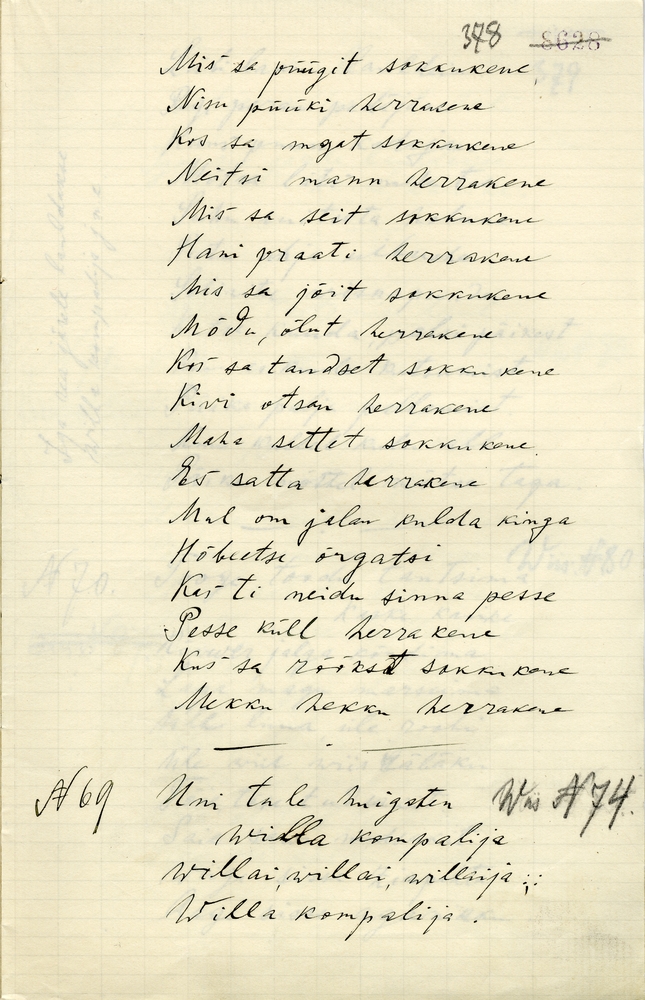 378 8628
Mis sa püügit sokkukene
Nisu püüki herrakene
Kos sa mgat sokkukene
Neitsi mann herrakene
Mis sa seit sokkukene
Hani praati herrakene
Mis sa jõit sokkukene
Mõdu, õlut herrakene
Kos sa tandset sokkukene
Kivi otsan herrakene
Maha sattet sokkukene
Es satta herrakene
Mul om jalan kulda kinga
Hõbeetse õrgatsi
Kas ti neidu sinna pesse
Pesse küll herrakene
Kus sa röökset sokkukene
Mekku hekku herrakene
N 69 Uni tule huigsten Wiis N 74.
willa kompalija
willai, willai, willaija :,:
Willa kompalija.
N 70.
Wiis N 80